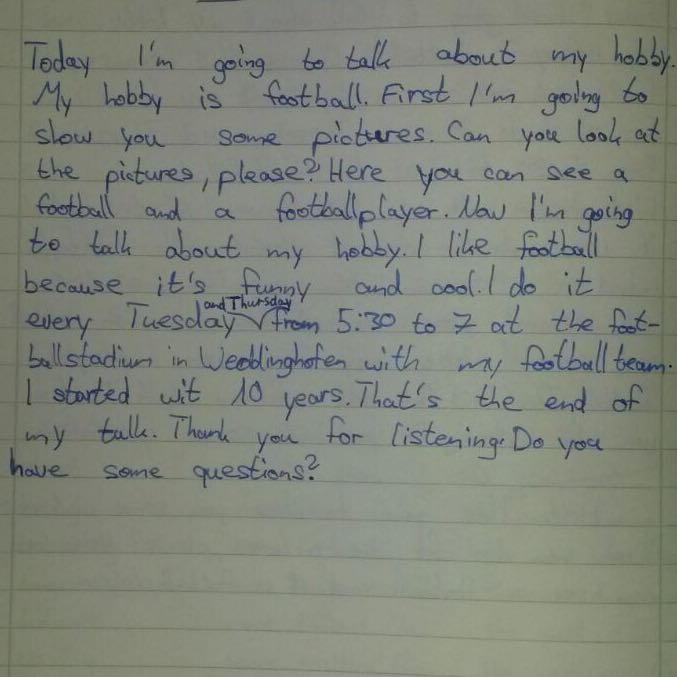 Today I'm going to talk about my hobby.
My hobby is football. First I'm going to
slow you some pictures. Can you look at
the pictures, please? Here you can see a
football and a footballplayer. Now I'm going
to talk about my hobby. I like football
because it's funny and cool. I do it
and Thursday
every Tuesday from 5:30 to 7 at the foot-
ballstadium in Weddinghofen with my football team.
I started wit 10 years. That's the end of
my talk. Thank you for listening. Do you
have some questions?